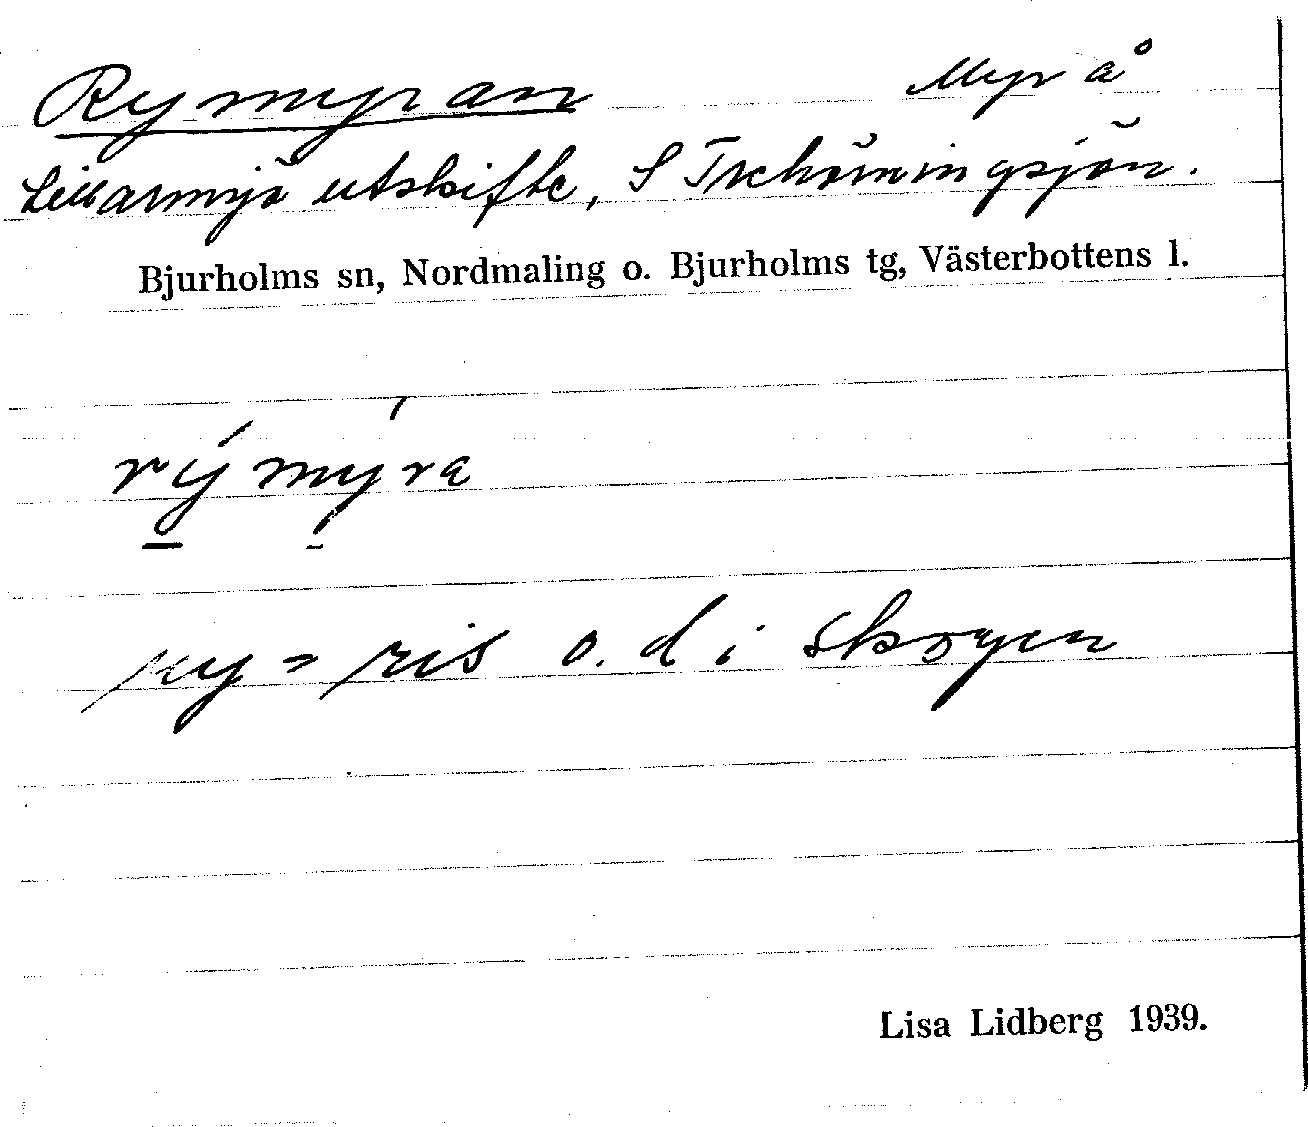 Rymyran Myr å
Lillarmsjö utskifte, S Trehörningsjön.
Bjurholms sn, Nordmaling o. Bjurholms tg, Västerbottens l.
rýmýra
ry = ris o. d i skogen
Lisa Lidberg 1939.